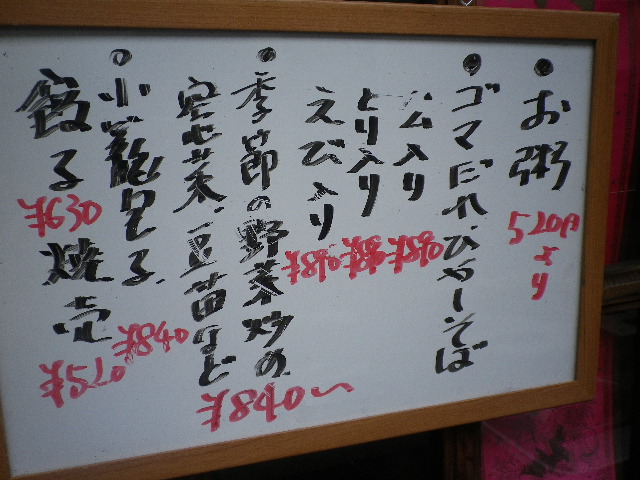 ・お粥 520円より
・ゴマだれひやしそば
ハム入り
とり入り
えび入り
・季節の野菜炒め
空芯菜、豆苗など ¥840〜
・小籠包子 ¥840
餃子 ¥630 焼売 ¥570